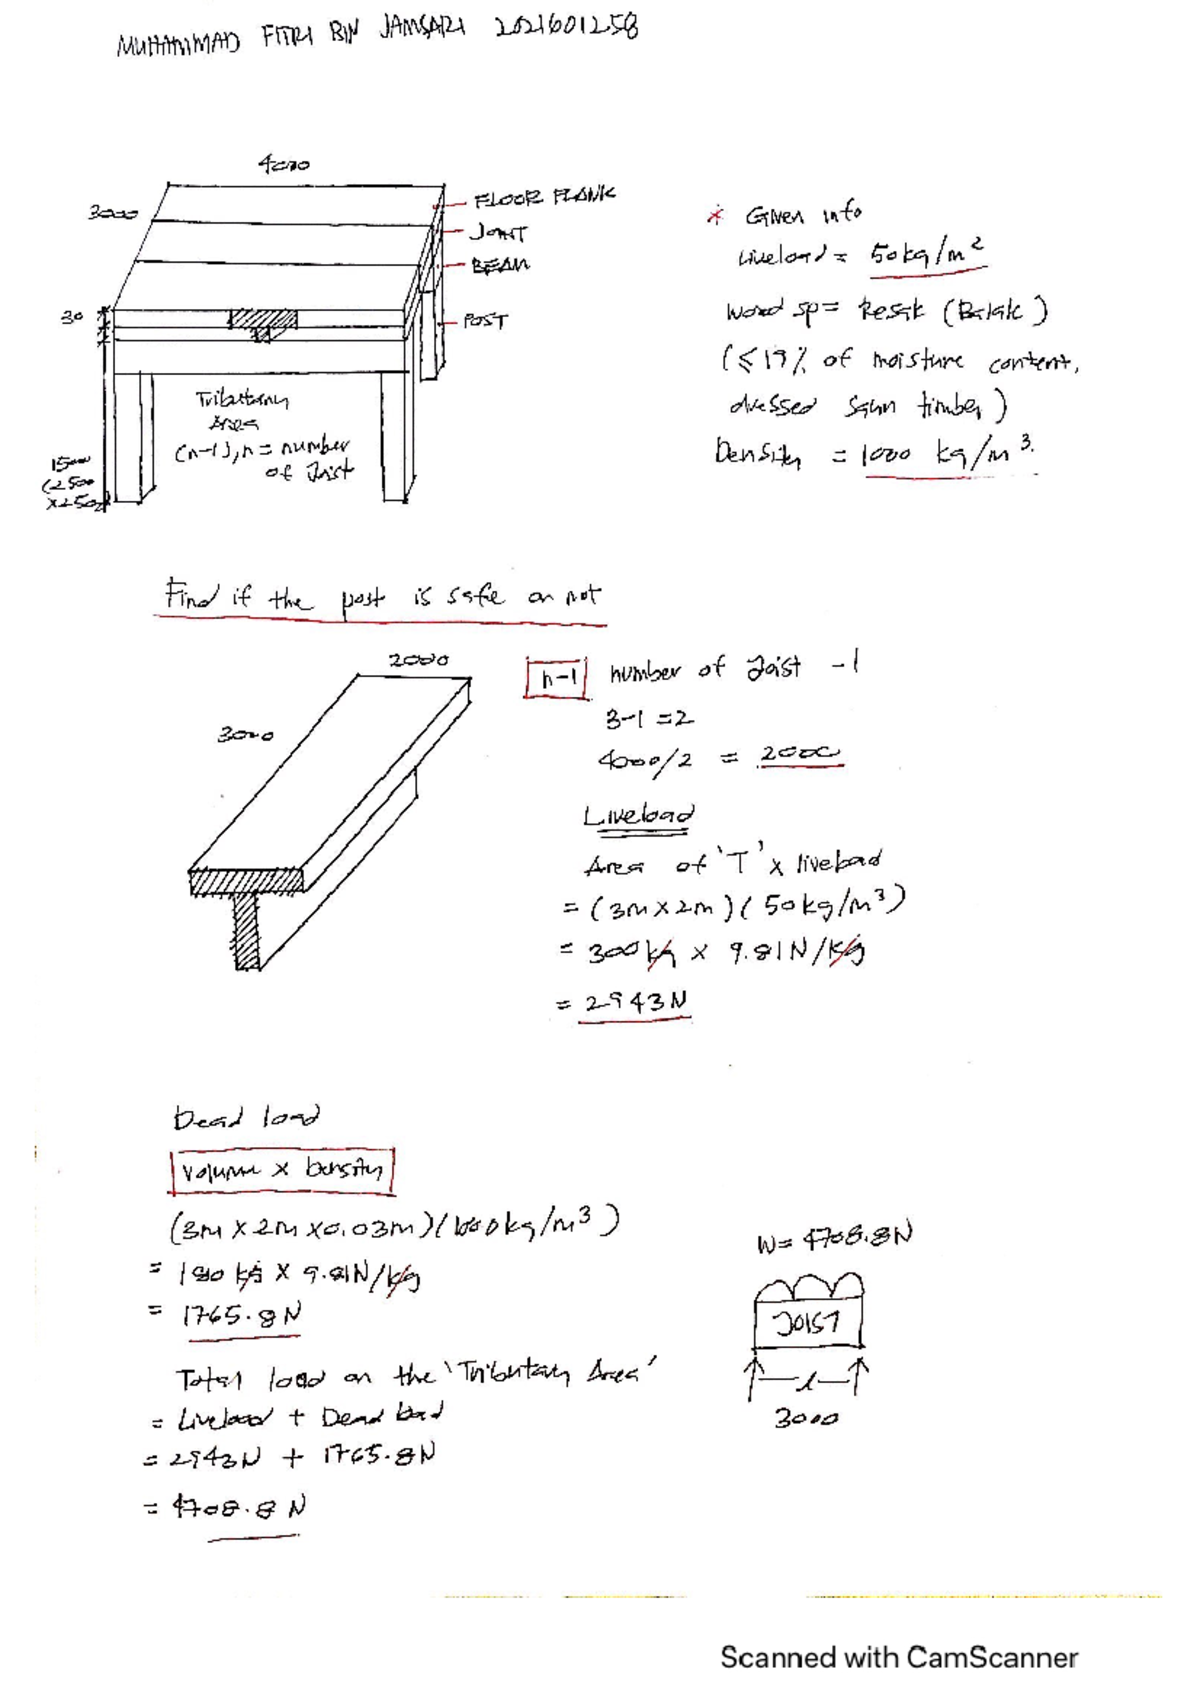 MUHAMMAD FITRI BIN JAMSARI 2021601258
4000
3000
FLOOR PLANK
JOINT
BEAM
30
POST
Tributary
Area
(n-1), n = number
of Joist
1500
(250
x250)
* Given info
Liveload = 50kg/m²
Wood sp = Resak (Balak)
(≤19% of moisture content,
dressed sawn timber)
Density = 1000 kg/m³.
Find if the post is safe or not
2000
3000
n-1 number of Joist -1
3-1 =2
4000/2 = 2000
Liveload
Area of 'T' x liveload
= (3m x 2m)(50kg/m³)
= 300kg x 9.81N/kg
= 2943N
Dead load
Volume x Density
(3m x 2m x 0.03m)(1000kg/m³)
= 180 kg x 9.81N/kg
= 1765.8N
Total load on the 'Tributary Area'
= Liveload + Dead load
= 2943N + 1765.8N
= 4708.8 N
W= 4708.8N
JOIST
l
3000
Scanned with CamScanner